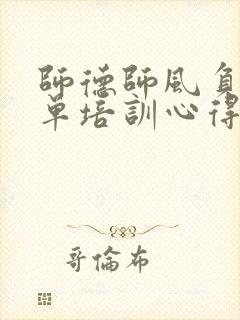 師德師風負
單培訓心得
哥倫布